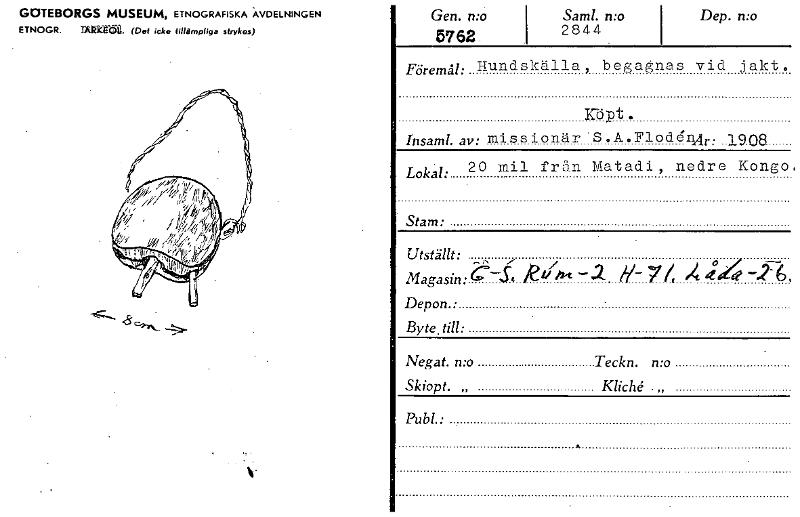 GÖTEBORGS MUSEUM, ETNOGRAFISKA AVDELNINGEN
ETNOGR. ARKEOL. (Det icke tillämpliga strykes)
8cm
Gen. n:o Saml. n:o Dep. n:o
5762 2844
Föremål: Hundskälla, begagnas vid jakt.
Köpt.
Insaml. av: missionär S.A.Flodén År: 1908
Lokal: 20 mil från Matadi, nedre Kongo.
Stam:
Utställt:
Magasin: G-S. Rum-2 H-71. Låda-26.
Depon.:
Byte till:
Negat. n:o Teckn. n:o
Skiopt. „ Kliché „
Publ.: